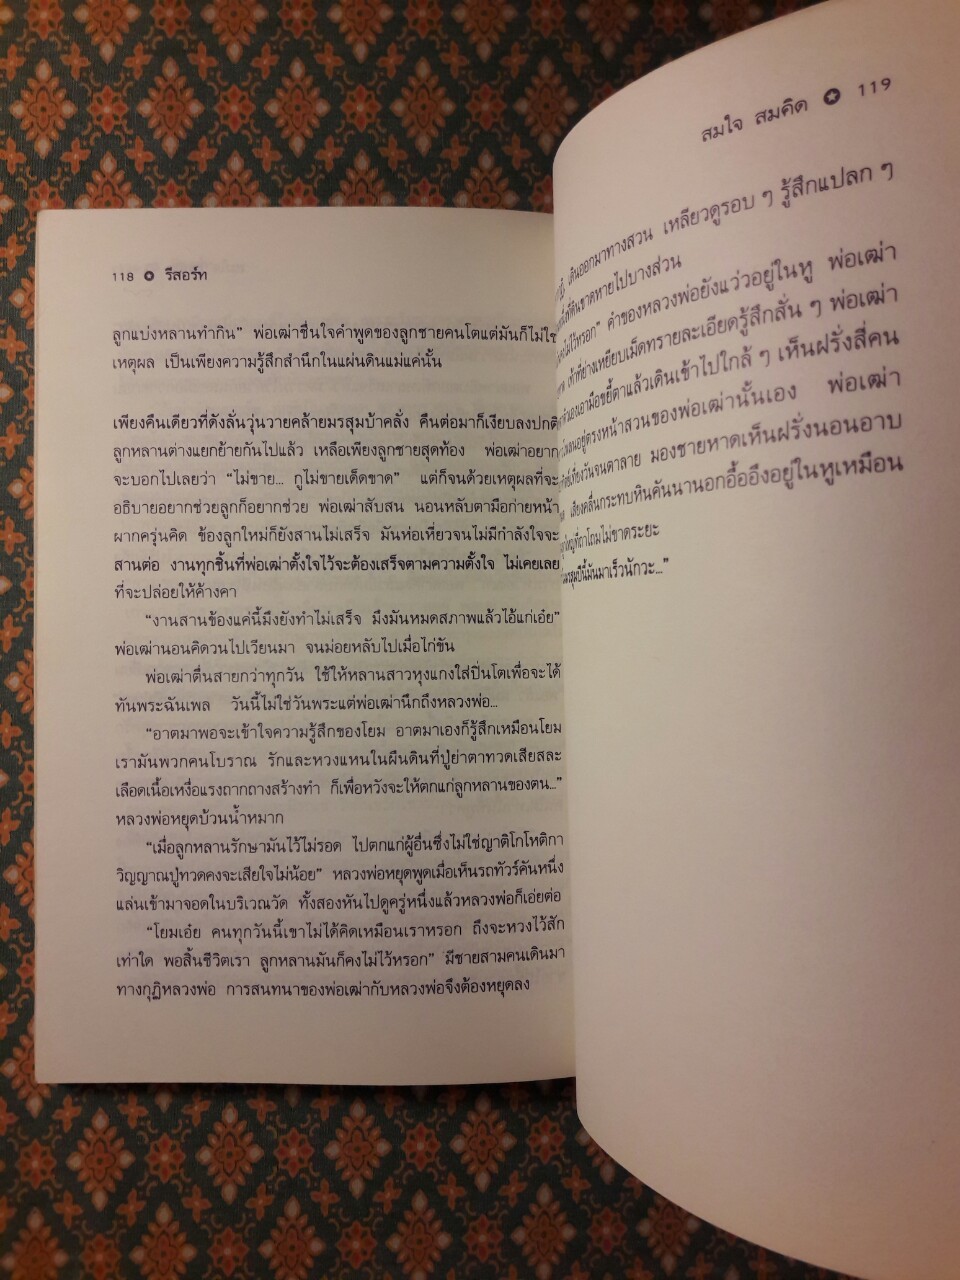 118 ✪ รีสอร์ท
ลูกแบ่งหลานทำกิน” พ่อเฒ่าชื่นใจคำพูดของลูกชายคนโตแต่มันก็ไม่ใช่
เหตุผล เป็นเพียงความรู้สึกสำนึกในแผ่นดินแม่แค่นั้น
เพียงคืนเดียวที่ดังลั่นวุ่นวายคล้ายมรสุมบ้าคลั่ง คืนต่อมาก็เงียบลงปกติ
ลูกหลานต่างแยกย้ายกันไปแล้ว เหลือเพียงลูกชายสุดท้อง พ่อเฒ่าอยาก
จะบอกไปเลยว่า “ไม่ขาย... กูไม่ขายเด็ดขาด” แต่ก็จนด้วยเหตุผลที่จะ
อธิบายอยากช่วยลูกก็อยากช่วย พ่อเฒ่าสับสน นอนหลับตามือก่ายหน้า
ผากครุ่นคิด ข้องลูกใหม่ก็ยังสานไม่เสร็จ มันห่อเหี่ยวจนไม่มีกำลังใจจะ
สานต่อ งานทุกชิ้นที่พ่อเฒ่าตั้งใจไว้จะต้องเสร็จตามความตั้งใจ ไม่เคยเลย
ที่จะปล่อยให้ค้างคา
“งานสานข้องแค่นี้มึงยังทำไม่เสร็จ มึงมันหมดสภาพแล้วไอ้แก่เอ๋ย”
พ่อเฒ่านอนคิดวนไปเวียนมา จนม่อยหลับไปเมื่อไก่ขัน
พ่อเฒ่าตื่นสายกว่าทุกวัน ใช้ให้หลานสาวหุงแกงใส่ปิ่นโตเพื่อจะได้
ทันพระฉันเพล วันนี้ไม่ใช่วันพระแต่พ่อเฒ่านึกถึงหลวงพ่อ...
“อาตมาพอจะเข้าใจความรู้สึกของโยม อาตมาเองก็รู้สึกเหมือนโยม
เรามันพวกคนโบราณ รักและหวงแหนในผืนดินที่ปู่ย่าตาทวดเสียสละ
เลือดเนื้อเหงื่อแรงถากถางสร้างทำ ก็เพื่อหวังจะให้ตกแก่ลูกหลานของตน...”
หลวงพ่อหยุดบ้วนน้ำหมาก
“เมื่อลูกหลานรักษามันไว้ไม่รอด ไปตกแก่ผู้อื่นซึ่งไม่ใช่ญาติโกโหติกา
วิญญาณปู่ทวดคงจะเสียใจไม่น้อย” หลวงพ่อหยุดพูดเมื่อเห็นรถทัวร์คันหนึ่ง
แล่นเข้ามาจอดในบริเวณวัด ทั้งสองหันไปดูครู่หนึ่งแล้วหลวงพ่อก็เอ่ยต่อ
“โยมเอ๋ย คนทุกวันนี้เขาไม่ได้คิดเหมือนเราหรอก ถึงจะหวงไว้สัก
เท่าใด พอสิ้นชีวิตเรา ลูกหลานมันก็คงไม่ไว้หรอก” มีชายสามคนเดินมา
ทางกุฏิหลวงพ่อ การสนทนาของพ่อเฒ่ากับหลวงพ่อจึงต้องหยุดลง
สมใจ สมคิด ✪ 119
เดินออกมาทางสวน เหลียวดูรอบ ๆ รู้สึกแปลก ๆ
ที่ดินขาดหายไปบางส่วน
ไม่ไว้หรอก” คำของหลวงพ่อยังแว่วอยู่ในหู พ่อเฒ่า
เท้าที่ย่างเหยียบเม็ดทรายละเอียดรู้สึกสั่น ๆ พ่อเฒ่า
เอามือขยี้ตาแล้วเดินเข้าไปใกล้ ๆ เห็นฝรั่งสี่คน
อยู่ตรงหน้าสวนของพ่อเฒ่านั้นเอง พ่อเฒ่า
เที่ยงวันจนตาลาย มองชายหาดเห็นฝรั่งนอนอาบ
เสียงคลื่นกระทบหินคันนานอกอื้ออึงอยู่ในหูเหมือน
ที่ถาโถมไม่ขาดระยะ
มรสุมปีนี้มันมาเร็วนักวะ...”